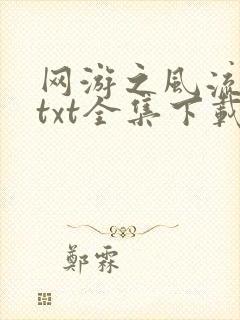 网游之风流
txt全集下载
郑霖